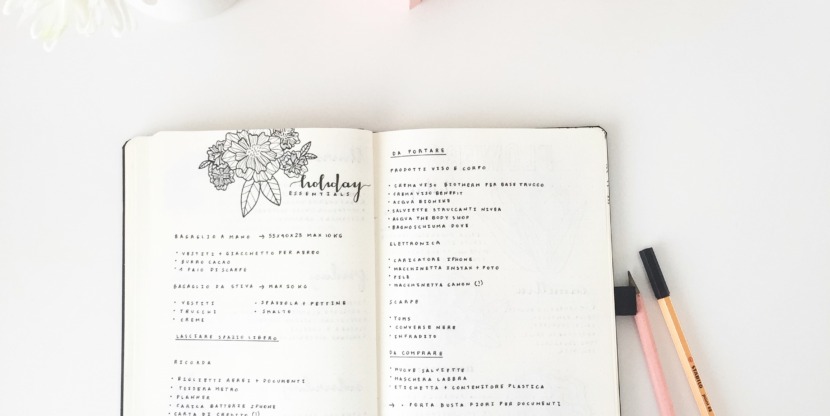 holiday
ESSENTIALS
BAGAGLIO A MANO → 55×40×25 MAX 10 KG
• VESTITI + GIACCHETTO PER AEREO
• BURRO CACAO
• PAIO DI SCARPE
BAGAGLIO DA STIVA → MAX 20 KG
• VESTITI
• TRUCCHI
• CREME
• SPAZZOLA + PETTINE
• SMALTO
LASCIARE SPAZIO LIBERO
RICORDA
• BIGLIETTI AEREI + DOCUMENTI
• TESSERA METRO
• PLANNER
• CARICA BATTERIE IPHONE
• CARTA DI CREDITO (!)
DA PORTARE
PRODOTTI VISO E CORPO
• CREMA VISO BIOTHERM PER BASE TRUCCO
• CREMA VISO BENEFIT
• ACQUA BIONIKE
• SALVIETTE STRUCCANTI NIVEA
• ACQUA THE BODY SHOP
• BAGNOSCHIUMA DOVE
ELETTRONICA
• CARICATORE IPHONE
• MACCHINETTA INSTAX + FOTO
• PILE
• MACCHINETTA CANON (?)
SCARPE
• TOMS
• CONVERSE NERE
• INFRADITO
DA COMPRARE
• NUOVE SALVIETTE
• MASCHERA LABBRA
• ETICHETTA + CONTENITORE PLASTICA
→ • PORTA BUSTA FIORI PER DOCUMENTI